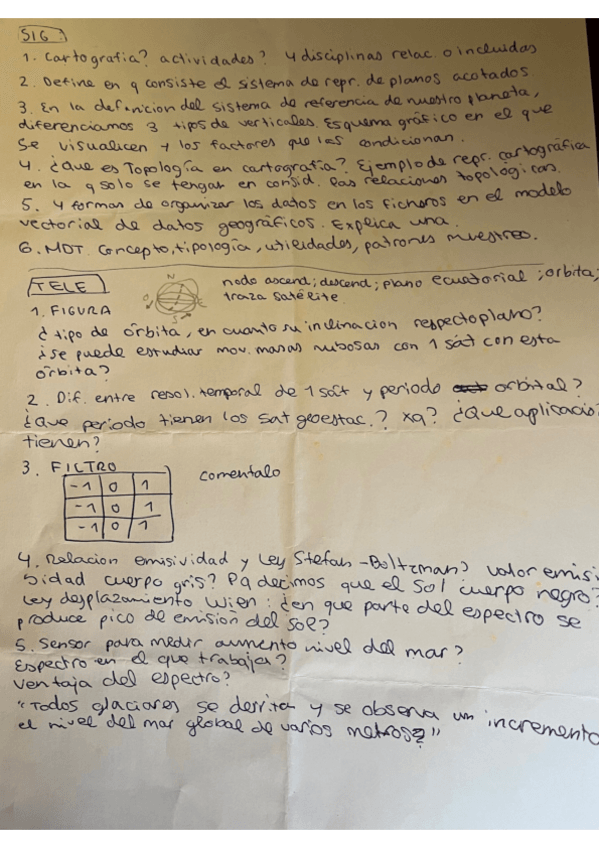 SIG:
1. Cartografia? actividades? 4 disciplinas relac. o incluidas
2. Define en q consiste el sistema de repr. de planos acotados
3. En la definicion del sistema de referencia de nuestro planeta,
diferenciamos 3 tipos de verticales. Esquema gráfico en el que
se visualicen y los factores que las condicionan.
4. ¿Que es Topología en cartografía? Ejemplo de repr. cartográfica
en la q solo se tengan en consid. las relaciones topologicas.
5. 4 formas de organizar los datos en los ficheros en el modelo
vectorial de datos geográficos. Explica una.
6. MDT. Concepto, tipología, utilidades, patrones muestreo.
TELE
N
O
S
nodo ascend; descend; plano ecuatorial; orbita;
traza satélite.
1. FIGURA
¿tipo de órbita, en cuanto su inclinacion respecto plano?
¿se puede estudiar mov. masas nubosas con 1 sát con esta
órbita?
2. Dif. entre resol. temporal de 1 sát y periodo orbital?
¿Que periodo tienen los sat geoestac.? xq? ¿Que aplicacio
tienen?
3. FILTRO
comentalo
-1 0 1
-1 0 1
-1 0 1
4. Relacion emisividad y Ley Stefan-Boltzman? valor emisi
sidad cuerpo gris? Pq decimos que el Sol cuerpo negro?
Ley desplazamiento Wien: ¿en que parte del espectro se
produce pico de emision del sol?
5. Sensor para medir aumento nivel del mar?
Espectro en el que trabaja?
ventaja del espectro?
"Todos glaciares se derritan y se observa un incremento
el nivel del mar global de varios metros?"